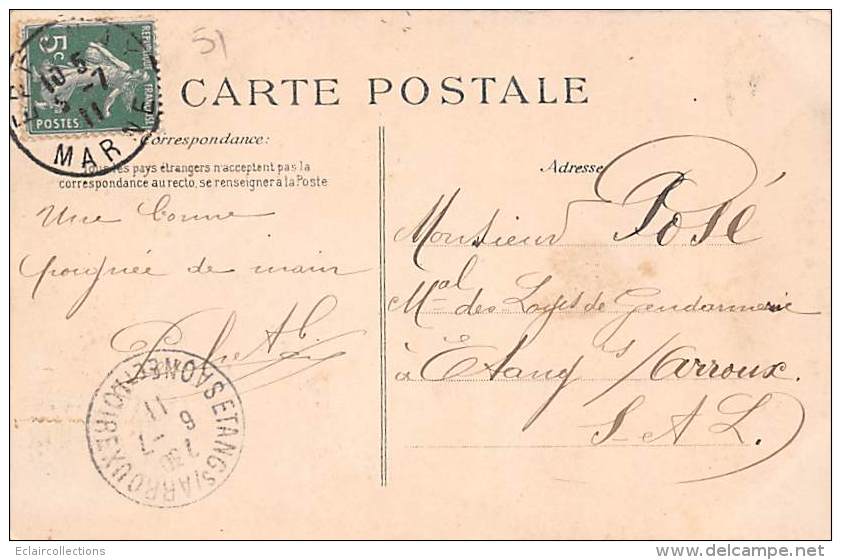 51
5c
REPUBLIQUE FRANÇAISE
POSTES
10 5
5 -7
11
MARNE
CARTE POSTALE
Correspondance:
Tous les pays étrangers n'acceptent pas la
correspondance au recto, se renseigner à la Poste
Adresse
Une bonne
poignée de main
Monsieur Posé
Mal des Logis de Gendarmerie
à Etang s/ Arroux.
S- A L.
ETANG S/ ARROUX SAONE-ET-LOIRE
7 30
6 7
11
Eclaircollections
delcampe.net